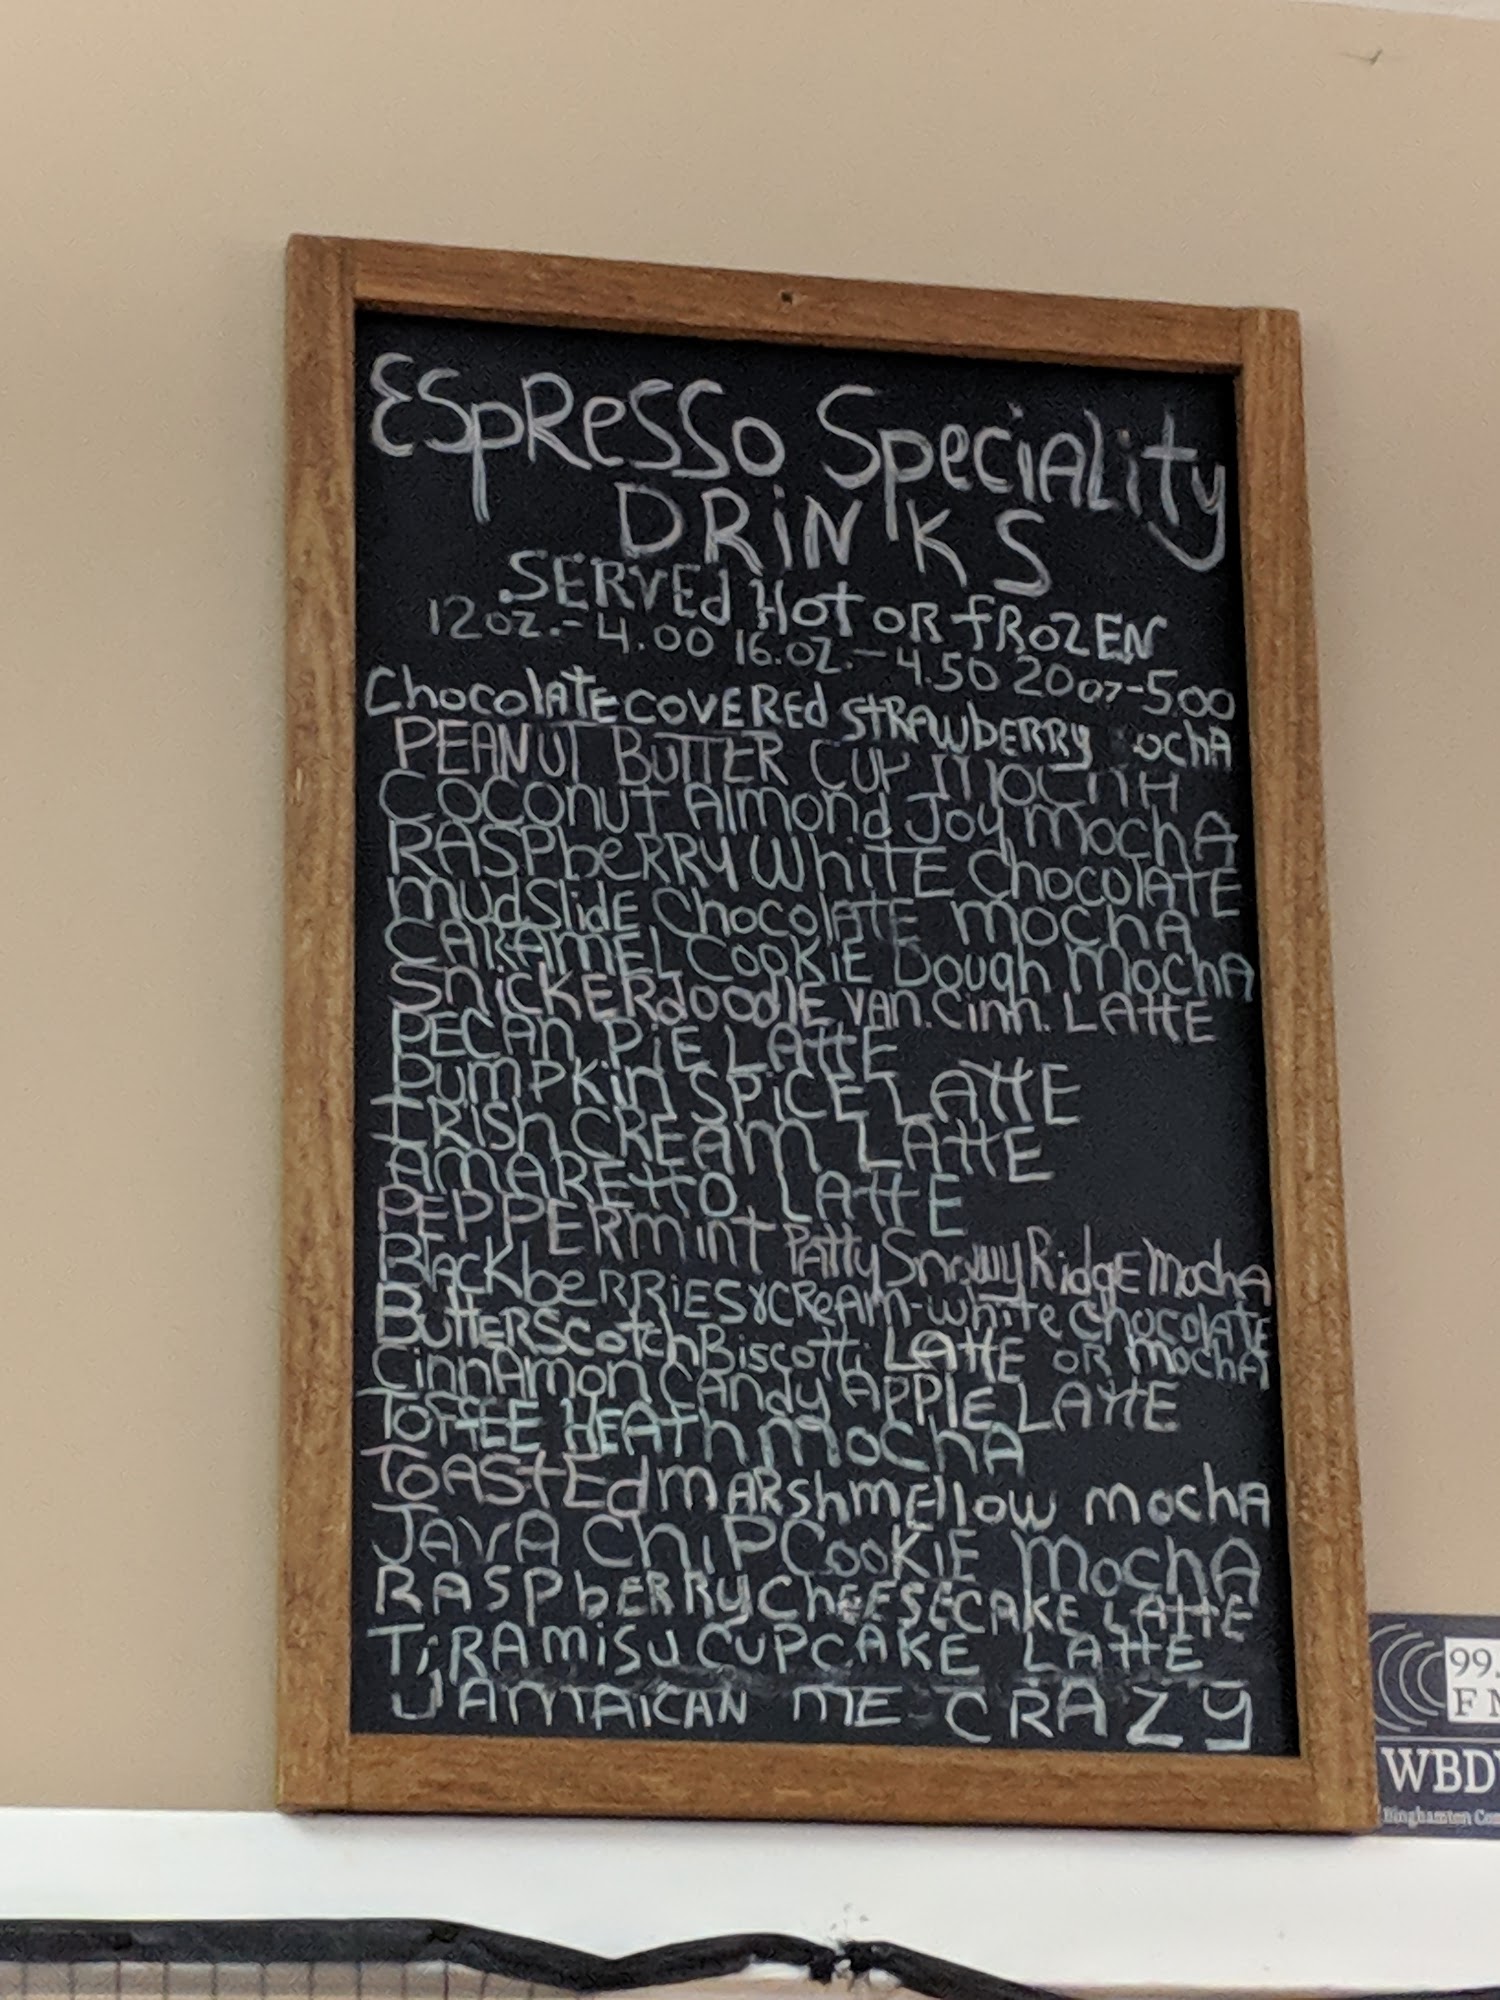 Espresso Speciality
DRiNKS
SERVEd Hot oR fROZEN
12oz.- 4.00 16.oz.- 4.50 20oz-5.00
ChocolATE COVEREd stRAwbERRy ochA
PEANUT BUTTER CUP MOCHA
COCONUT AlmoNd Joy MochA
RASPbeRRy WhiTE ChocolATE
mudSlidE ChocolATE mochA
CARAMEL CooKiE Dough MochA
SNiCKERdoodlE VAN. Cinn. LAttE
PECAN PiE LAttE
PumPKin SPiCE LAttE
IRISh CREAM LAttE
AMAREttO LAttE
PEPPERminT Patty Snowy RidgE MochA
BlACKbeRRiES & CReAm-white ChocolATE
ButtERScotch Biscotti LAttE oR mochA
CinnAmon CAndy APPlE LAttE
TOFFEE HEATh MochA
ToAStEd mARshmEllow mochA
JAVA ChiP CooKiE MochA
RASPbERRy ChEESECAKE LAttE
TiRAmiSu CUPCAKE LAttE
JAMAiCAN ME CRAZy
99.
FM
WBDY
Binghamton Com